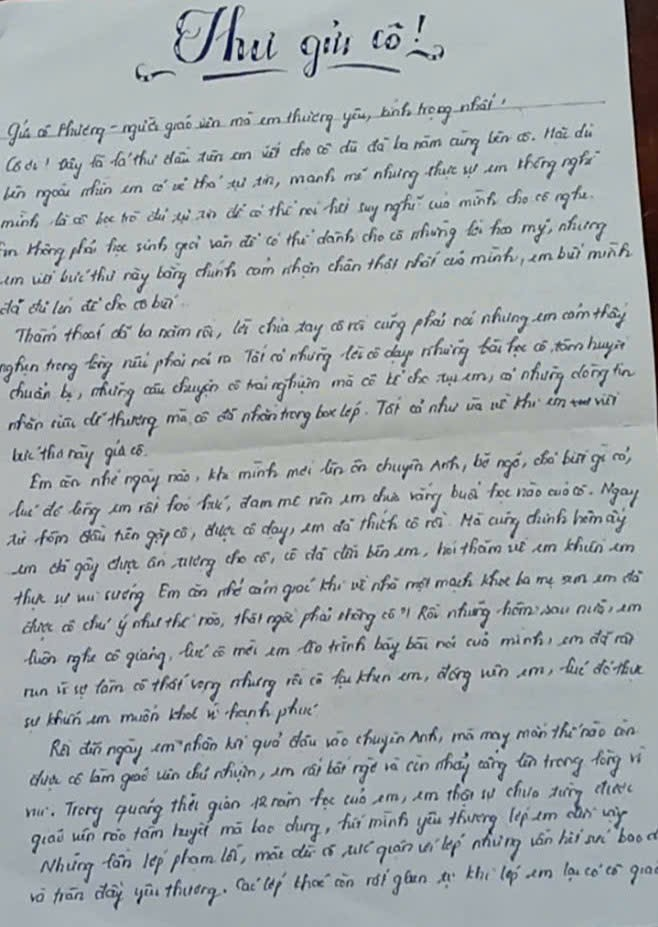 Thư gửi cô!
gửi cô Phương - người giáo viên mà em thương yêu, kính trọng nhất!
Cô ơi! Đây là lá thư đầu tiên em viết cho cô dù đã ba năm cùng bên cô. Mặc dù
bên ngoài nhìn em có vẻ khá tự tin, mạnh mẽ nhưng thực sự em không nghĩ
mình là cô học trò đủ tự tin để có thể nói hết suy nghĩ của mình cho cô nghe.
Em không phải học sinh giỏi văn để có thể dành cho cô những lời hoa mỹ, nhưng
em viết bức thư này bằng chính cảm nhận chân thật nhất của mình, em bút mình
để cho cô
Thấm thoát đã ba năm rồi, lời chia tay cô rồi cũng phải nói nhưng em cảm thấy
nghẹn trong lòng nếu phải nói ra Tất cả những lời cô dạy những bài học cô tâm huyết
chuẩn bị, những câu chuyện cô trải nghiệm mà cô kể cho tụi em, cả những dòng tin
nhắn dễ thương mà cô đã nhắn trong box lớp. Tất cả như ùa về khi em viết
bức thư này gửi cô.
Em còn nhớ ngày nào, khi mình mới lên ôn chuyên Anh, bỡ ngỡ, chả biết gì cả,
lúc đó lòng em rất háo hức, đam mê nên em chưa vắng buổi học nào của cô. Ngay
từ hôm đầu tiên gặp cô, được cô dạy, em đã thích cô rồi. Mà cũng chính hôm ấy
em đã gây được ấn tượng cho cô, cô đã đến bên em, hỏi thăm về em khiến em
thực sự vui sướng Em còn nhớ cảm giác khi về nhà một mạch khoe ba mẹ xem em đã
được cô chú ý như thế nào, thật ngốc phải không cô?! Rồi những hôm sau nữa, em
luôn nghe cô giảng, lúc cô mời em lên trình bày bài nói của mình, em đã rất
run vì sợ làm cô thất vọng nhưng rồi cô lại khen em, động viên em, lúc đó thực
sự khiến em muốn khóc vì hạnh phúc
Rồi đến ngày em nhận kết quả đầu vào chuyên Anh, mà may mắn thế nào còn
được cô làm giáo viên chủ nhiệm, em rất bất ngờ và còn nhảy cẫng lên trong lòng vì
vui. Trong quãng thời gian 12 năm học của em, em thật sự chưa từng được
giáo viên nào tâm huyết mà bao dung, hết mình yêu thương lớp em đến vậy
Những lần lớp phạm lỗi, mặc dù cô tức giận với lớp nhưng vẫn hết sức bao d
và tràn đầy yêu thương. Các lớp khác còn rất ghen tỵ khi lớp em lại có cô giáo